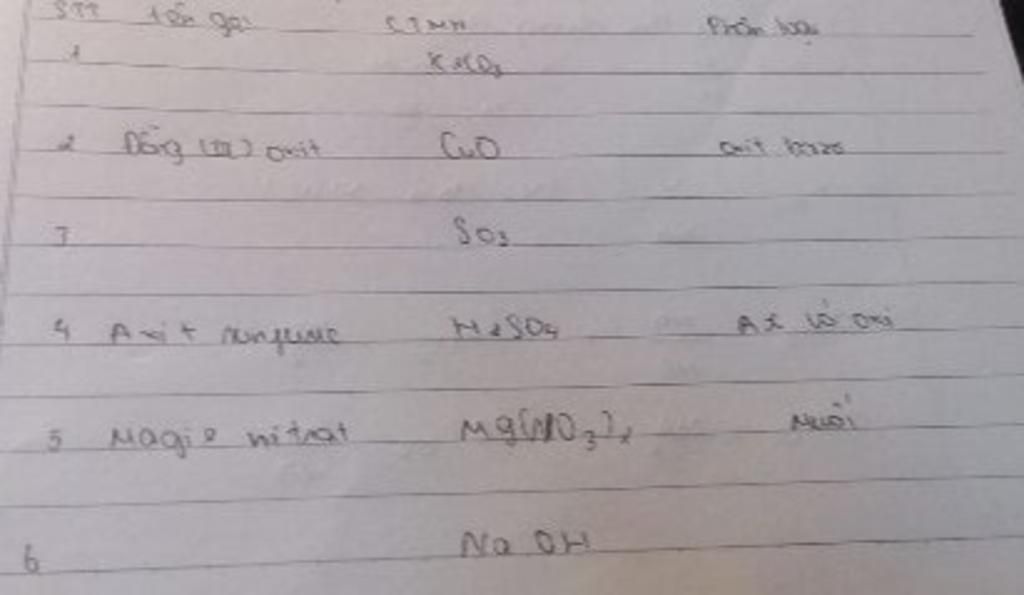 STT Tên gọi CTHH Phân loại
1
2 Đồng (II) oxit CuO oxit bazo
3 SO3
4 Axit sunfuric H2SO4 Ax có oxi
5 Magie nitrat Mg(NO3)2 Muối
6 NaOH